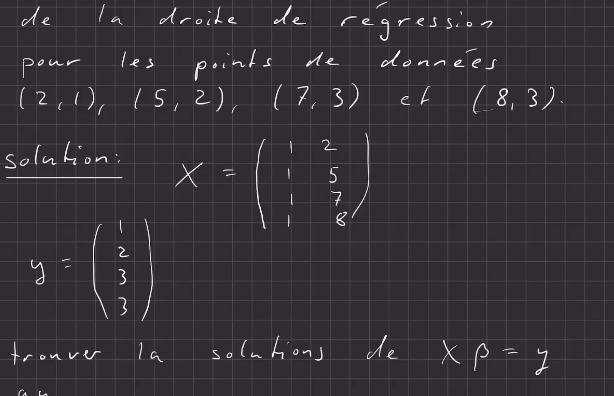 de la droite de régression
pour les points de données
(2,1), (5,2), (7,3) et (8,3).
solution: X = ( 1 2
1 5
1 7
1 8 )
y = ( 1
2
3
3 )
trouver la solutions de Xβ = y
au